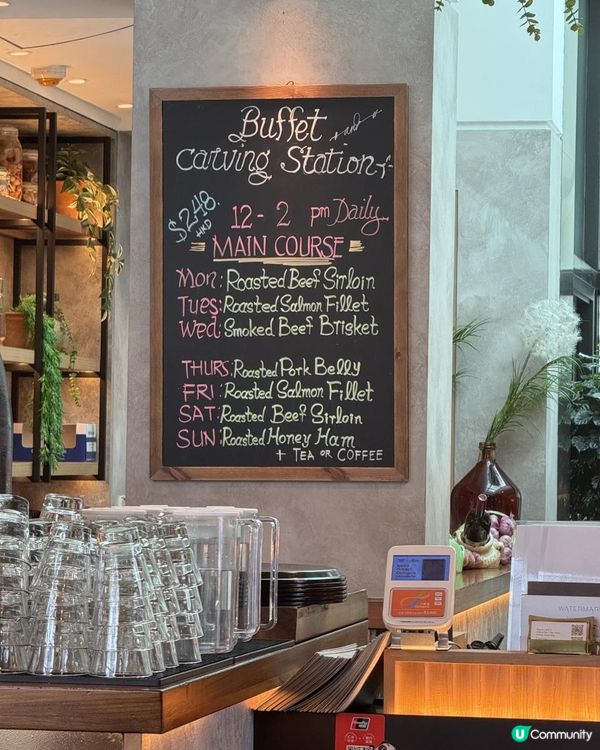 Buffet and
carving Station
$248.
HKD
12 - 2 pm Daily
MAIN COURSE
Mon: Roasted Beef Sirloin
Tues: Roasted Salmon Fillet
Wed: Smoked Beef Brisket
THURS: Roasted Pork Belly
FRI: Roasted Salmon Fillet
SAT: Roasted Beef Sirloin
SUN: Roasted Honey Ham
+ TEA OR COFFEE
WATERMARK
U Community